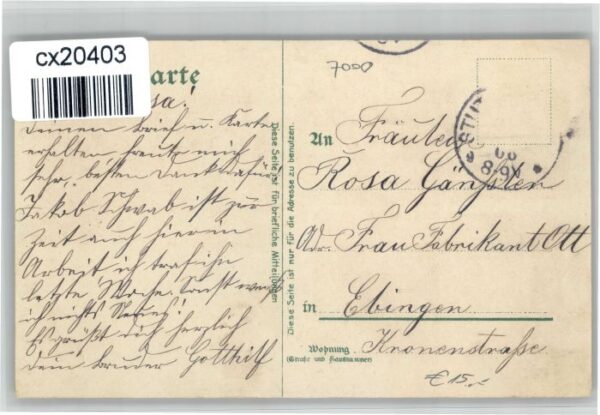 cx20403
arte
sa!
Deinen Brief u. Karte
erhalten freute mich
sehr, besten Dank dafür
Jakob Schwab ist zur
Zeit auch hier in
Arbeit ich traf ihn
letzte Woche. Sonst weiß
ich nichts Neues!
Es grüßt dich herzlich
dein Bruder Gotthilf
Diese Seite ist für briefliche Mitteilungen
Diese Seite ist nur für die Adresse zu benutzen.
7000
STU
8-9V
An Fräulein
Rosa Gänßlen
Adr. Frau Fabrikant Ott
in Ebingen
Wohnung Kronenstraße
(Straße und Hausnummer)
€ 15.-